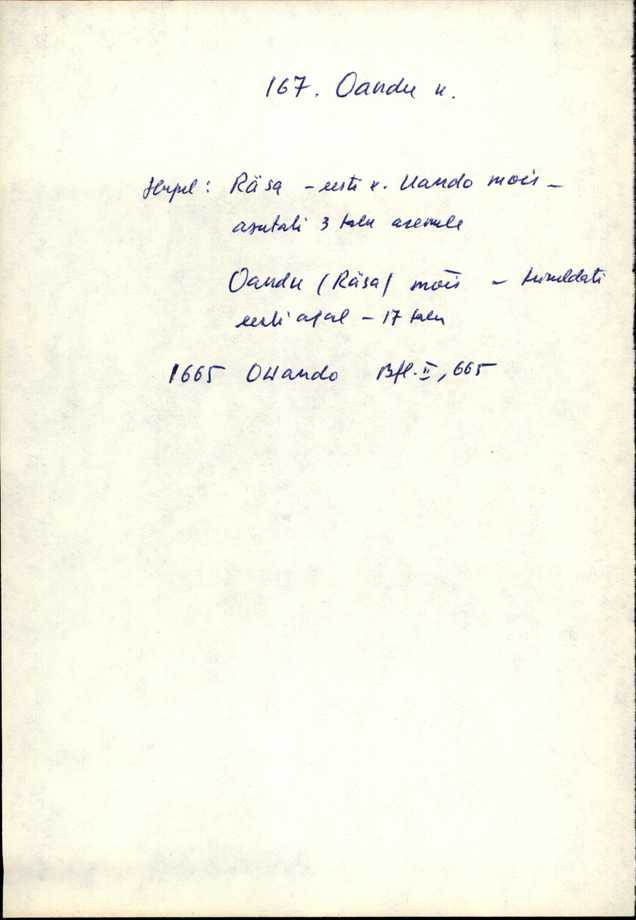 167. Oandu k.
Hupel: Räsa – eesti k. Uando mois –
asutati 3 talu asemele
Oandu (Räsa) mõis –
eesti ajal – 17 talu
1665 Ouando Bfl. II, 665